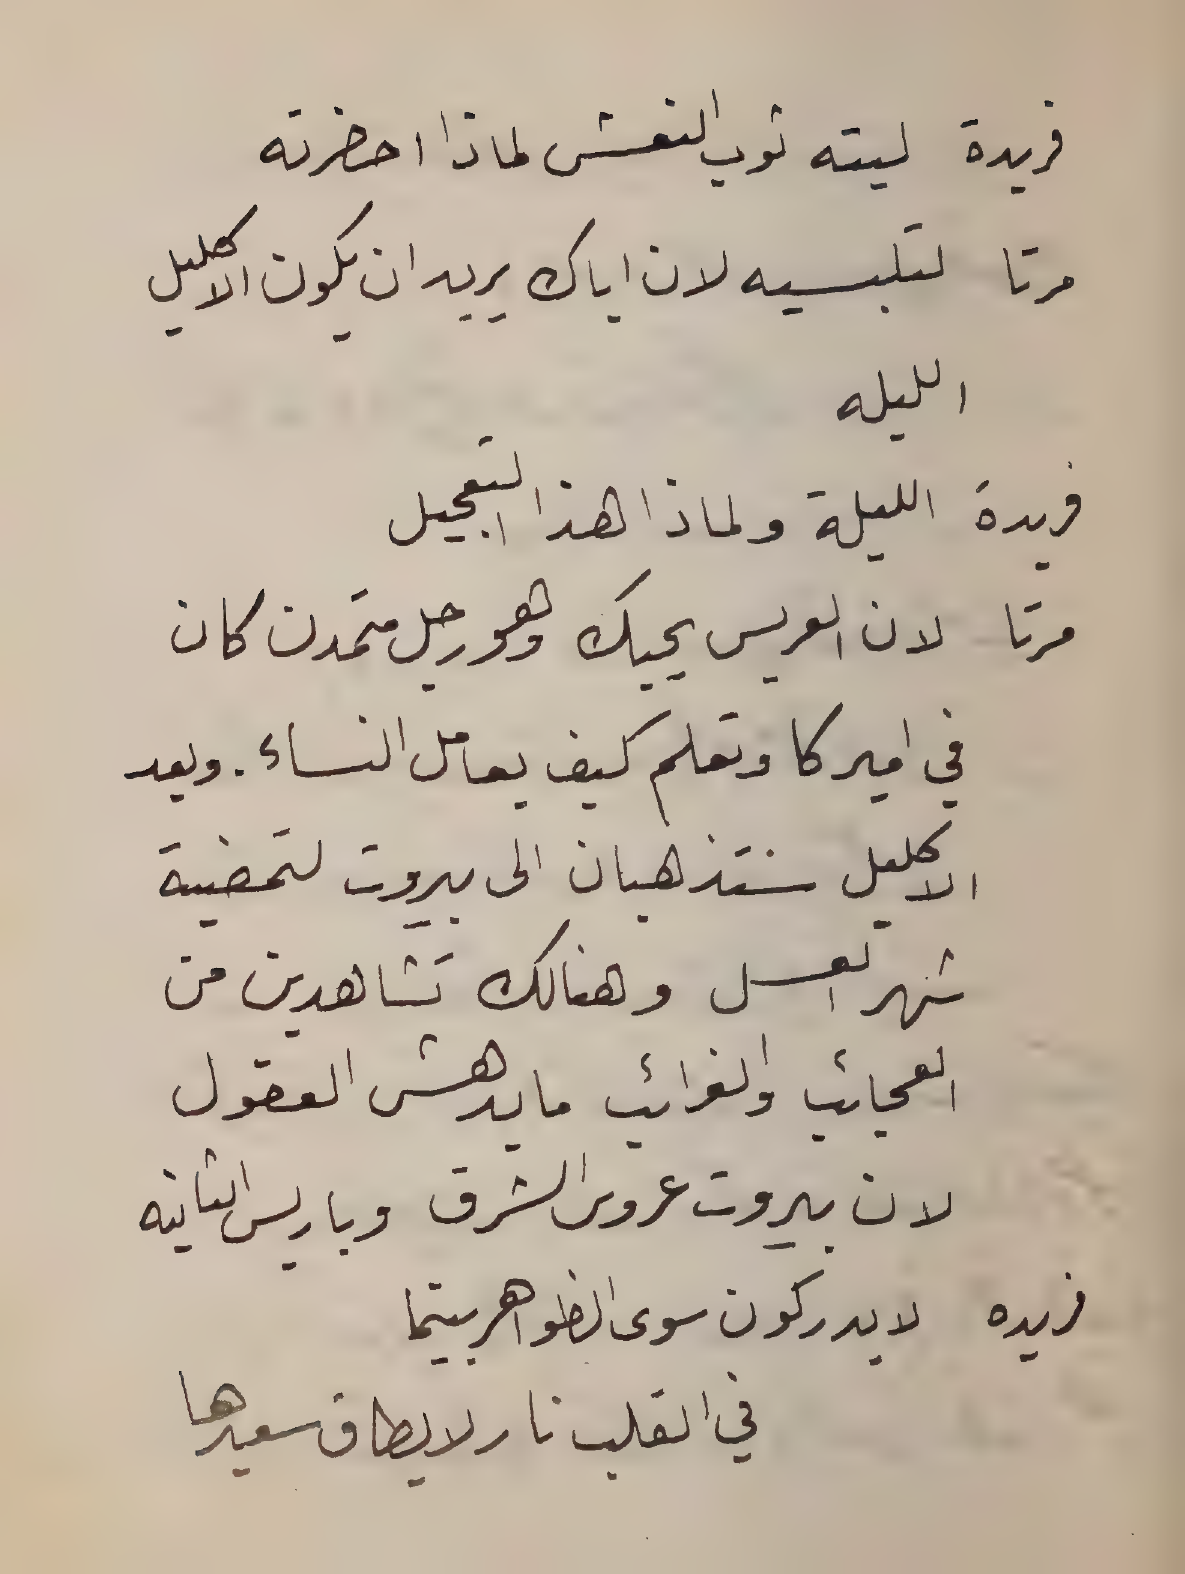 فريدة ليته ثوب النعش لماذا احضرته
مرتا لتلبسيه لان اباك يريد ان يكون الاكليل
الليله
فريدة الليلة ولماذا هذا التعجيل
مرتا لان العريس يحبك وهو رجل متمدن كان
في اميركا وتعلم كيف يعامل النساء. وبعد
الاكليل ستذهبان الى بيروت لتمضية
شهر العسل وهنالك تشاهدين من
العجائب والغرائب ما يدهش العقول
لان بيروت عروس الشرق وباريس الثانيه
فريده لا يدركون سوى الظواهر بينما
في القلب نار لا يطاق سعيرها